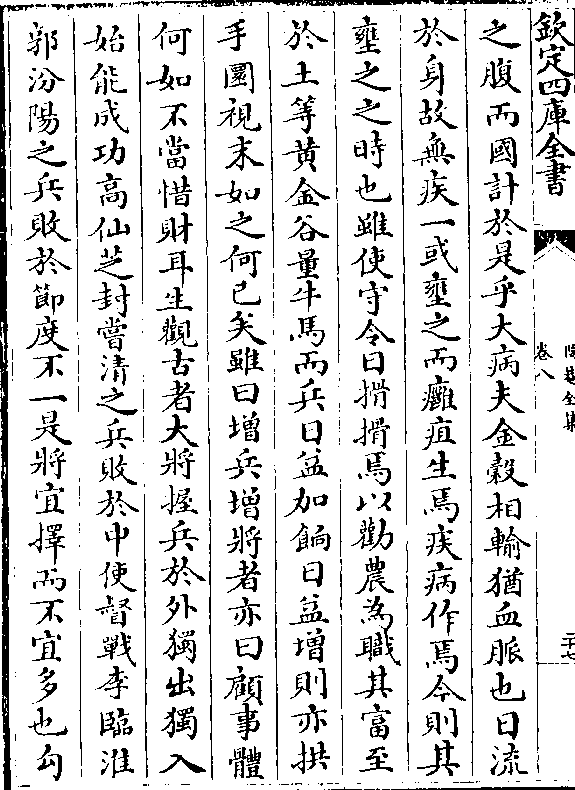 欽定四庫全書
卷八
二十七
之腹而國計於是乎大病夫金穀相輸猶血脈也日流
於身故無疾一或壅之而癰疽生焉疾病作焉今則其
壅之之時也雖使守令日搰搰焉以勸農為職其富至
於土等黄金谷量牛馬而兵日益加餉日益增則亦拱
手圜視末如之何已矣雖曰增兵增將者亦曰顧事體
何如不當惜財耳生觀古者大將握兵於外獨出獨入
始能成功高仙芝封嘗清之兵敗於中使督戰李臨淮
郭汾陽之兵敗於節度不一是將宜擇而不宜多也勾